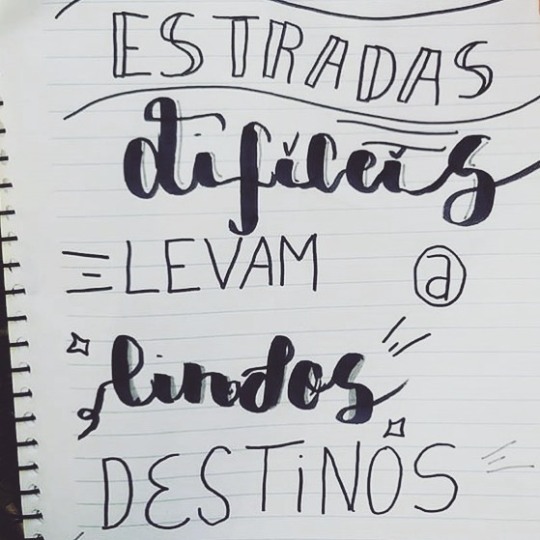 ESTRADAS
difíceis
LEVAM a
lindos
DESTiNOS